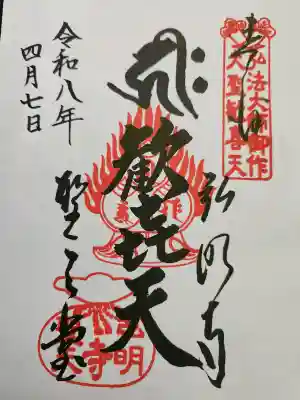 奉拝
弘法大師御作
大聖歓喜天
歓喜天
弘明寺
聖天堂
令和八年
四月七日